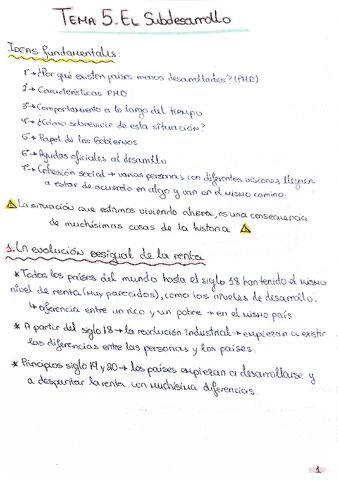 TEMA 5. EL Subdesarrollo
IDEAS fundamentales:
1º→ ¿Por qué existen países menos desarrollados? (PMD)
2º→ Características PMD
3º→ Comportamiento a lo largo del tiempo
4º→ ¿Cómo sobrevivir de esta situación?
5º→ Papel de los Gobiernos
6º→ Ayudas oficiales al desarrollo
7º→ Cohesión social → varias personas con diferentes visiones lleguen
a estar de acuerdo en algo y van en el mismo camino.
La situación que estamos viviendo ahora, es una consecuencia
de muchísimas cosas de la historia
1. La evolución desigual de la renta
* Todos los países del mundo hasta el siglo 18 han tenido el mismo
nivel de renta (muy parecidos), como los niveles de desarrollo.
↳ diferencia entre un rico y un pobre → en el mismo país
* A partir del siglo 18 → la revolución industrial → empiezan a existir
las diferencias entre las personas y los países.
* Principios siglo 19 y 20 → los países empiezan a desarrollarse y
a despuntar la renta con muchísima diferencias.
1